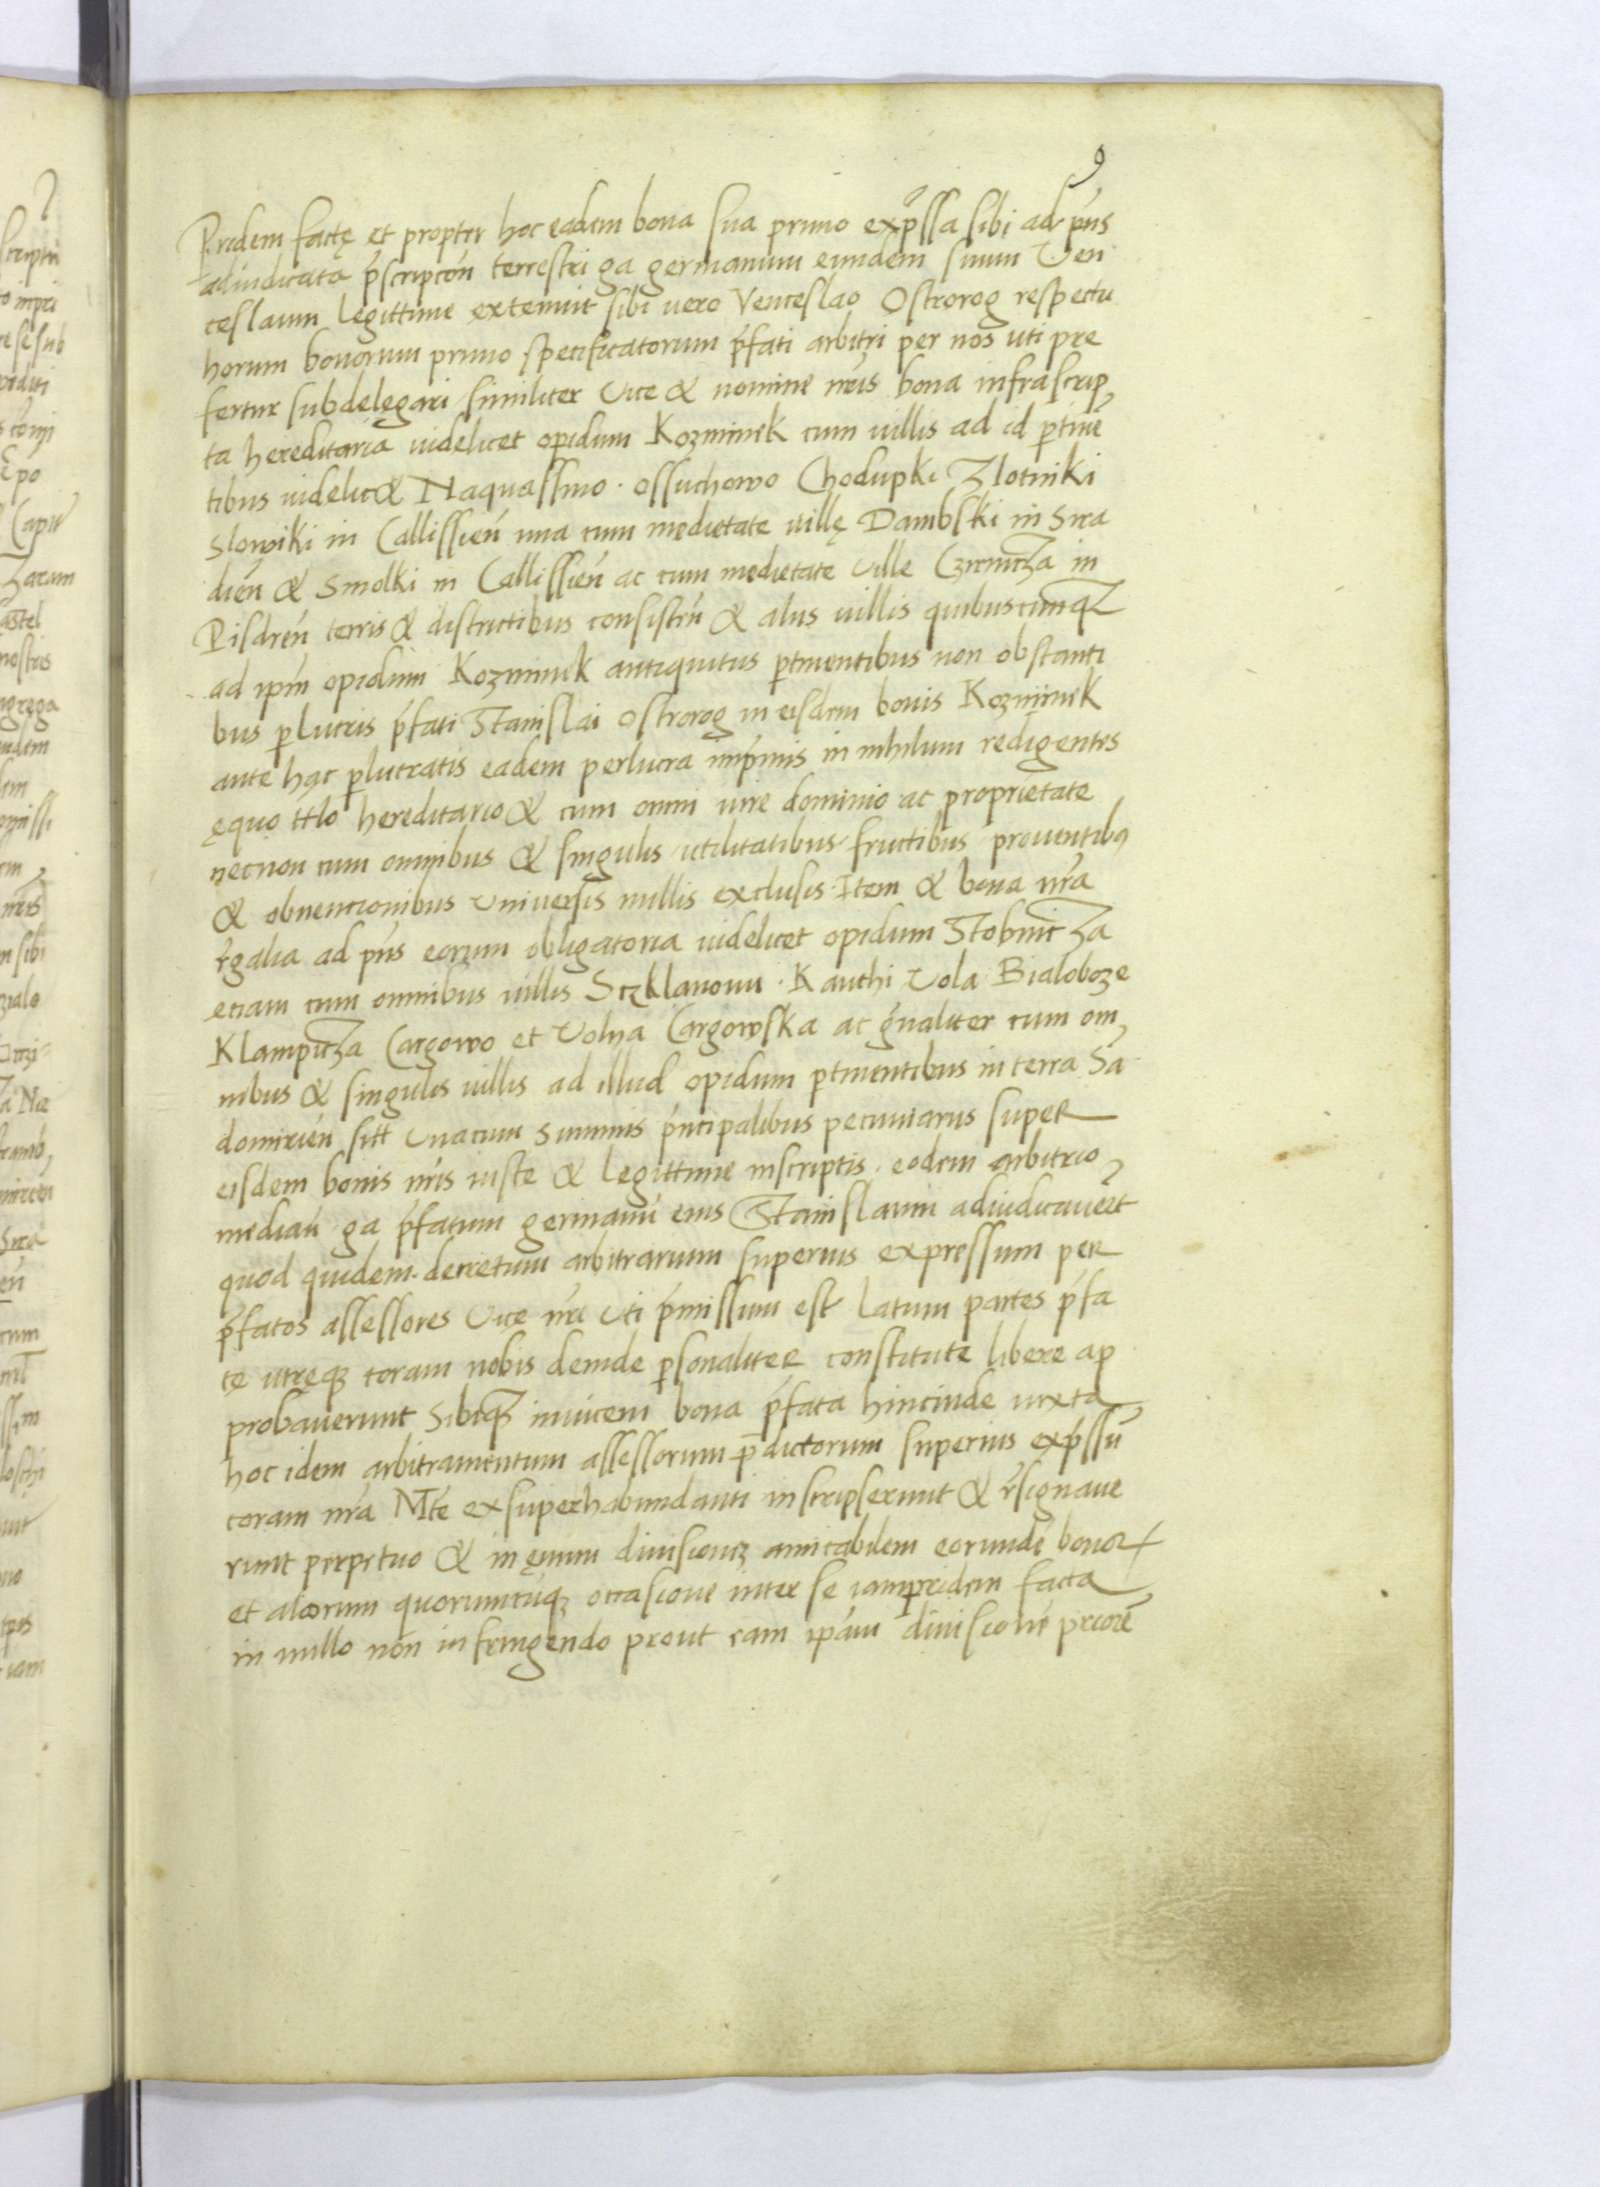 9
Pridem factę et propter hoc eadem bona sua primo exp̃ssa sibi ad p̃ns
adiudicata p̃scripcoń terrestri ga germanum eundem suum Ven
ceslaum legittime extenuit sibi vero Venceslao Ostrorog respectu
horum bonorum primo specificatorum p̃fati arbitri per nos uti pre
fertur subdelegari similiter Vice & nomine nr̃is bona infrascrip
ta hereditaria videlicet opidum Kozminek cum villis ad id ptineñ
tibus videlic& Naquassino · Ossuchowo Chodupki Zlotniki
Slowiki in Callissień una cum medietate villę Dambski in Sira
dień & Smolki in Callissień ac cum medietate Ville Czirnicza in
Pisdreń terris & districtibus consisteń & aliis villis quibuscumqz
ad ipm̃ opidum Kozminek antiquitus ptinentibus non obstanti
bus plucris p̃fati Stanislai Ostrorog in eisdem bonis Kozminek
ante hac plucratis eadem perlucra imp̃mis in nihilum redigentes
ęquo ttlo hereditario & cum omni iure dominio ac proprietate
necnon cum omnibus & singulis utilitatibus fructibus proventibq
& obuencionibus Universis nullis exclusis · Item & bona nr̃a
r̃galia ad p̃ns eorum obligatoria videlicet opidum Stobnicza
eciam cum omnibus villis Sczklanovu · Kauthi Vola Bialoboze
Klampicza Cargowo et Volya Cargowska ac g̃naliter cum om
nibus & singulis villis ad illud opidum ptinentibus in terra Sa
domirień sitt Vnacum Summis p̃ncipalibus pecuniariis super
eisdem bonis nr̃is iuste & legittime inscriptis · eodem arbitrio
mediań ga p̃fatum germanũ eius Stanislaum adiudicauert
quod quidem decretum arbitrarium superius expressum per
p̃fatos assessores Vice nr̃i Uti p̃missum est latum partes p̃fa
tę utręqz coram nobis deinde psonaliter constitute libere ap
probaverunt Sibiqz inuicem bona p̃fata hincinde iuxta
hoc idem arbitramentum assessorum p̃dictorum superius exp̃ssũ
coram nr̃a Mte exsuperhabundanti inscripserunt & r̃signaue
runt perpetuo & in ęuum diuisionẽ amicabilem eorundẽ bonor
et aliorum quorumcũqz occasione inter se iampridem facta
in nullo non infringendo prout eam ipãm diuisionẽ priorẽ